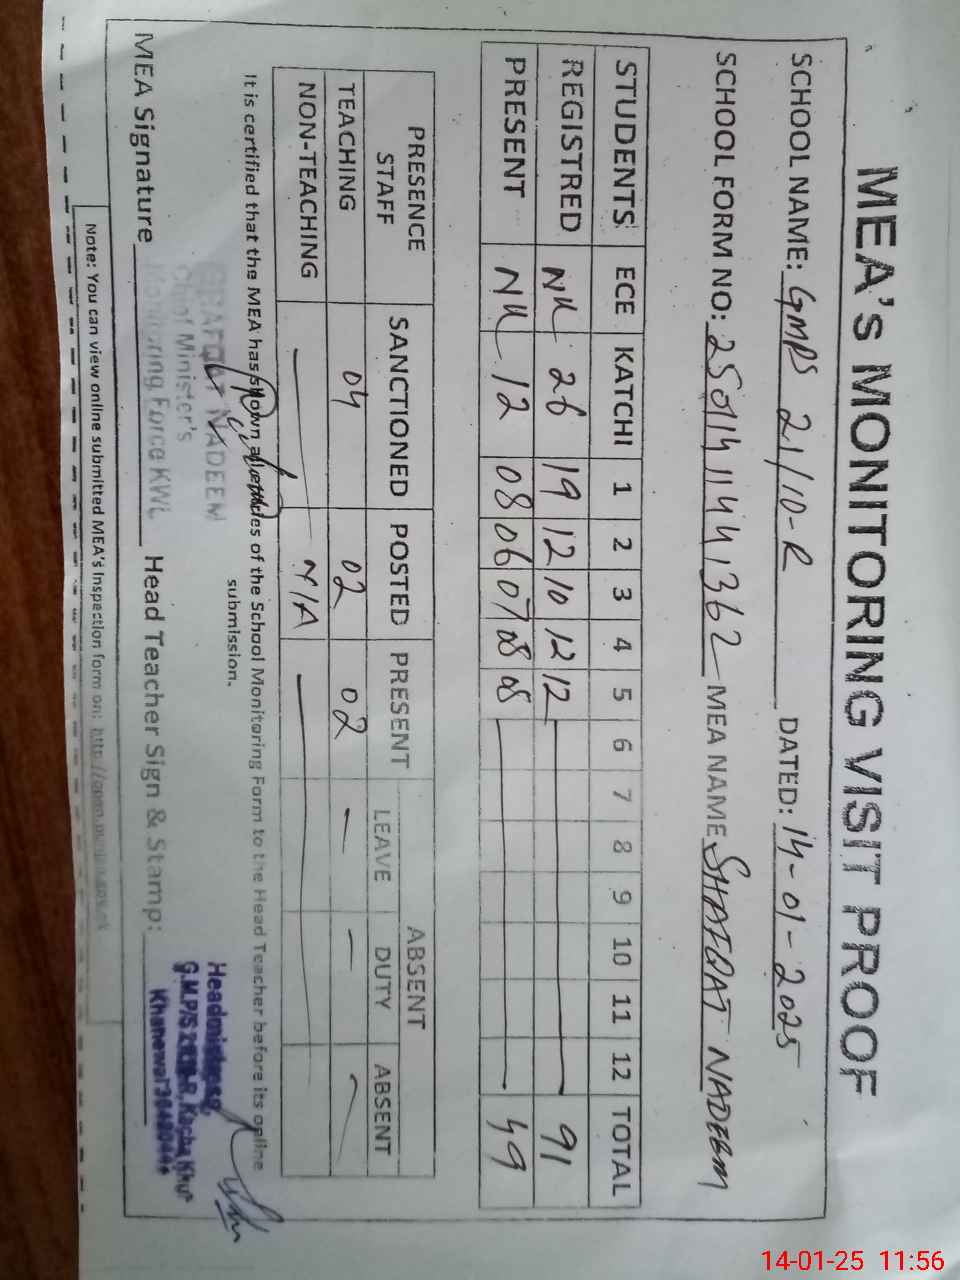 MEA's MONITORING VISIT PROOF
SCHOOL NAME: GMPS 21/10-R DATED: 14-01-2025
SCHOOL FORM NO: MEA NAME SHAFQAT NADEEM
STUDENTS ECE KATCHI 1 2 3 4 5 6 7 8 9 10 11 12 TOTAL
REGISTRED Nil 26 19 12 10 12 12 91
PRESENT Nil 12 08 06 07 08 08 49
PRESENCE STAFF SANCTIONED POSTED PRESENT ABSENT
LEAVE DUTY ABSENT
TEACHING 04 02 02 — — —
NON-TEACHING — N/A —
It is certified that the MEA has shown all entries of the School Monitoring Form to the Head Teacher before its online
submission.
SHAFQAT NADEEM
Chief Minister's
Monitoring Force KWL
MEA Signature Head Teacher Sign & Stamp:
Headmistress,
G.M.P/S 21/10-R, Kacha Khu
Khanewal
Note: You can view online submitted MEA's Inspection form on:
14-01-25 11:56